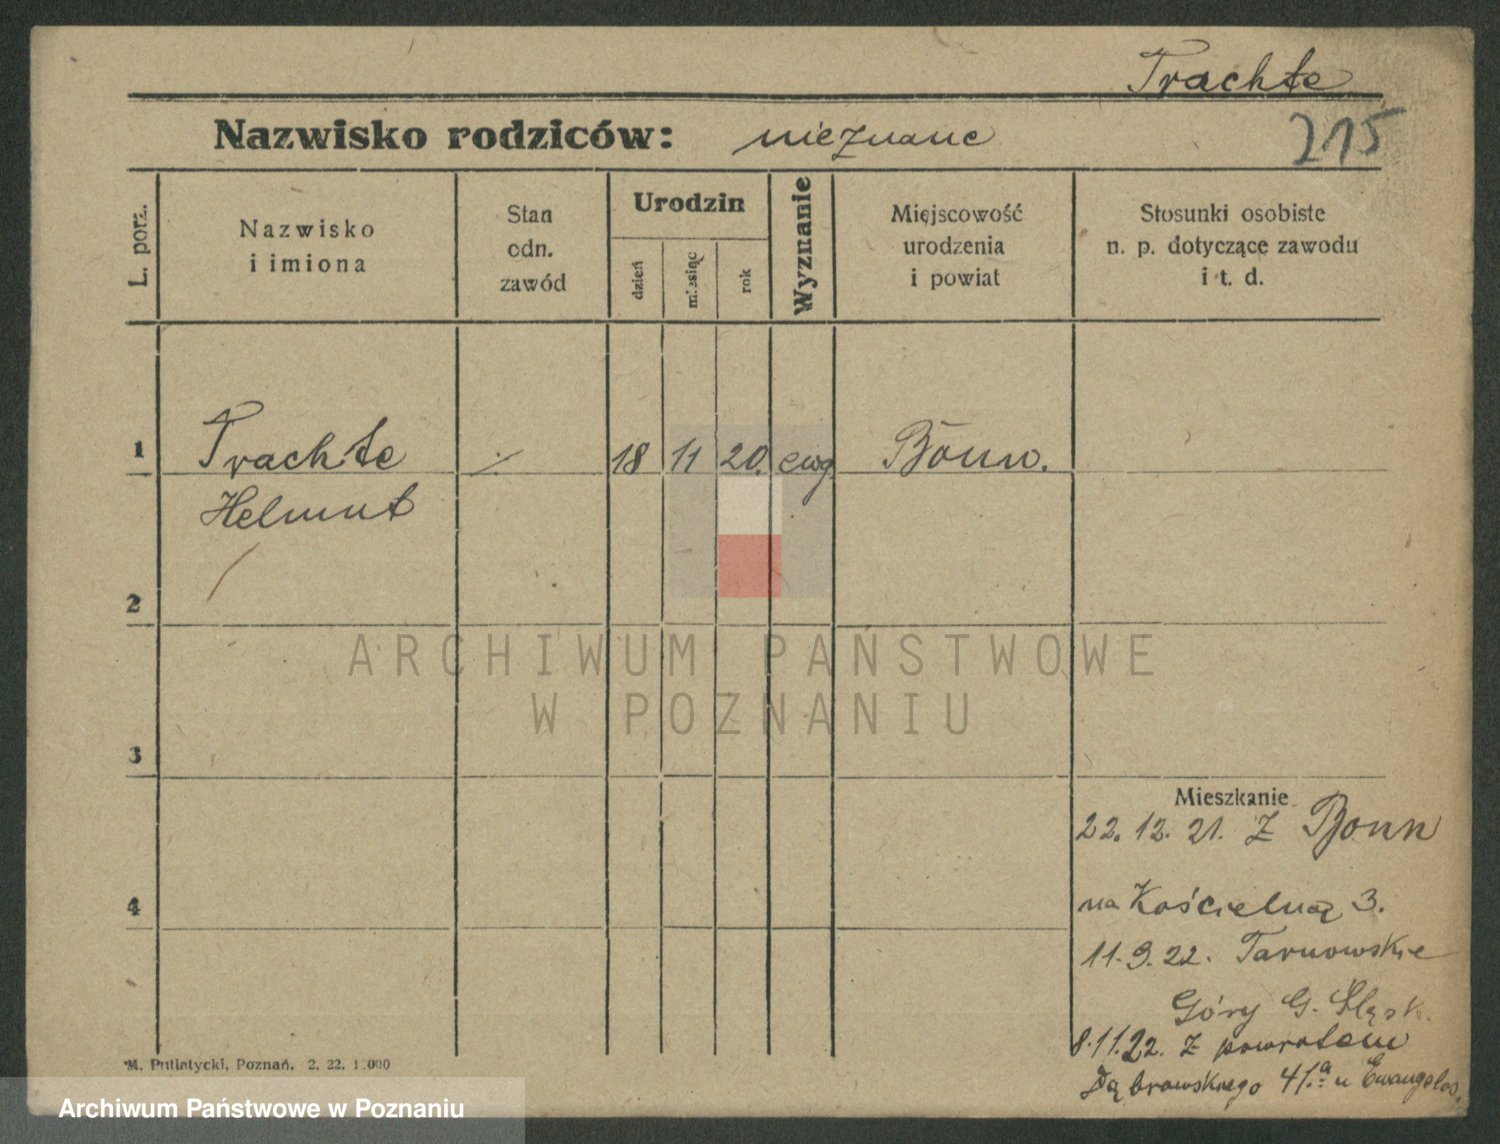 Trachte
Nazwisko rodziców: nieznane
215
L. porz.
Nazwisko
i imiona
Stan
odn.
zawód
Urodzin
dzień
miesiąc
rok
Wyznanie
Miejscowość
urodzenia
i powiat
Stosunki osobiste
n. p. dotyczące zawodu
i t. d.
1
Trachte
Helmut
18
11
20.
ewg.
Bonn.
2
3
4
Mieszkanie
22. 12. 21. z Bonn
na Kościelną 3.
11. 9. 22. Tarnowskie
Góry G. Śląsk.
8.11.22. z powrotem
Dąbrowskiego 41.a u Ewangelos.
M. Putiatycki, Poznań. 2. 22.
ARCHIWUM PAŃSTWOWE
W POZNANIU
Archiwum Państwowe w Poznaniu